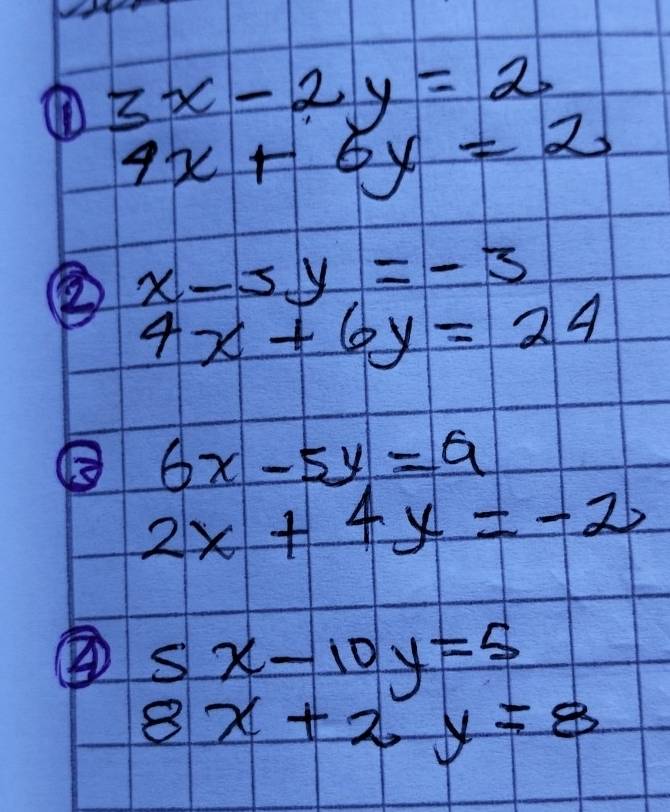 ① 3x - 2y = 2
4x + 6y = 2
② x - 5y = -3
4x + 6y = 24
③ 6x - 5y = 9
2x + 4y = -2
④ 5x - 10y = 5
8x + 2y = 8